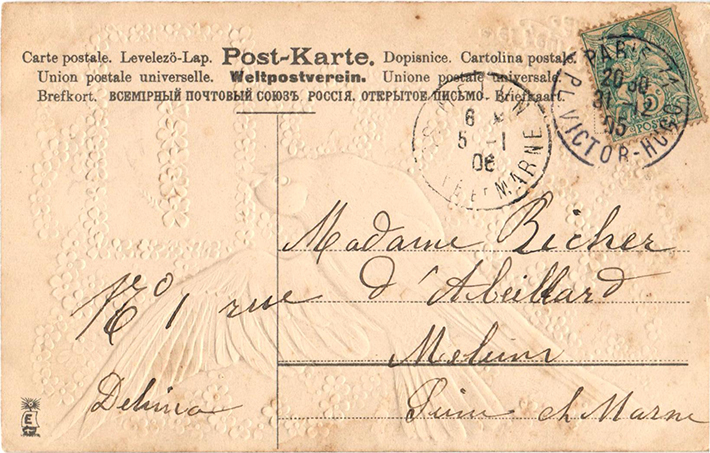 Carte postale. Levelezö-Lap. Post-Karte. Dopisnice. Cartolina postale.
Union postale universelle. Weltpostverein. Unione postale universale.
Brefkort. ВСЕМІРНЫЙ ПОЧТОВЫЙ СОЮЗЪ РОССІЯ. ОТКРЫТОЕ ПИСЬМО. Briefkaart.
PARIS
20 30
31 12
05
PL. VICTOR-HUGO
5
POSTES
6
5 -1
06
ET MARNE
Madame Richer
No 1 rue d'Abeillard
Melun
Delima
Seine et Marne
E